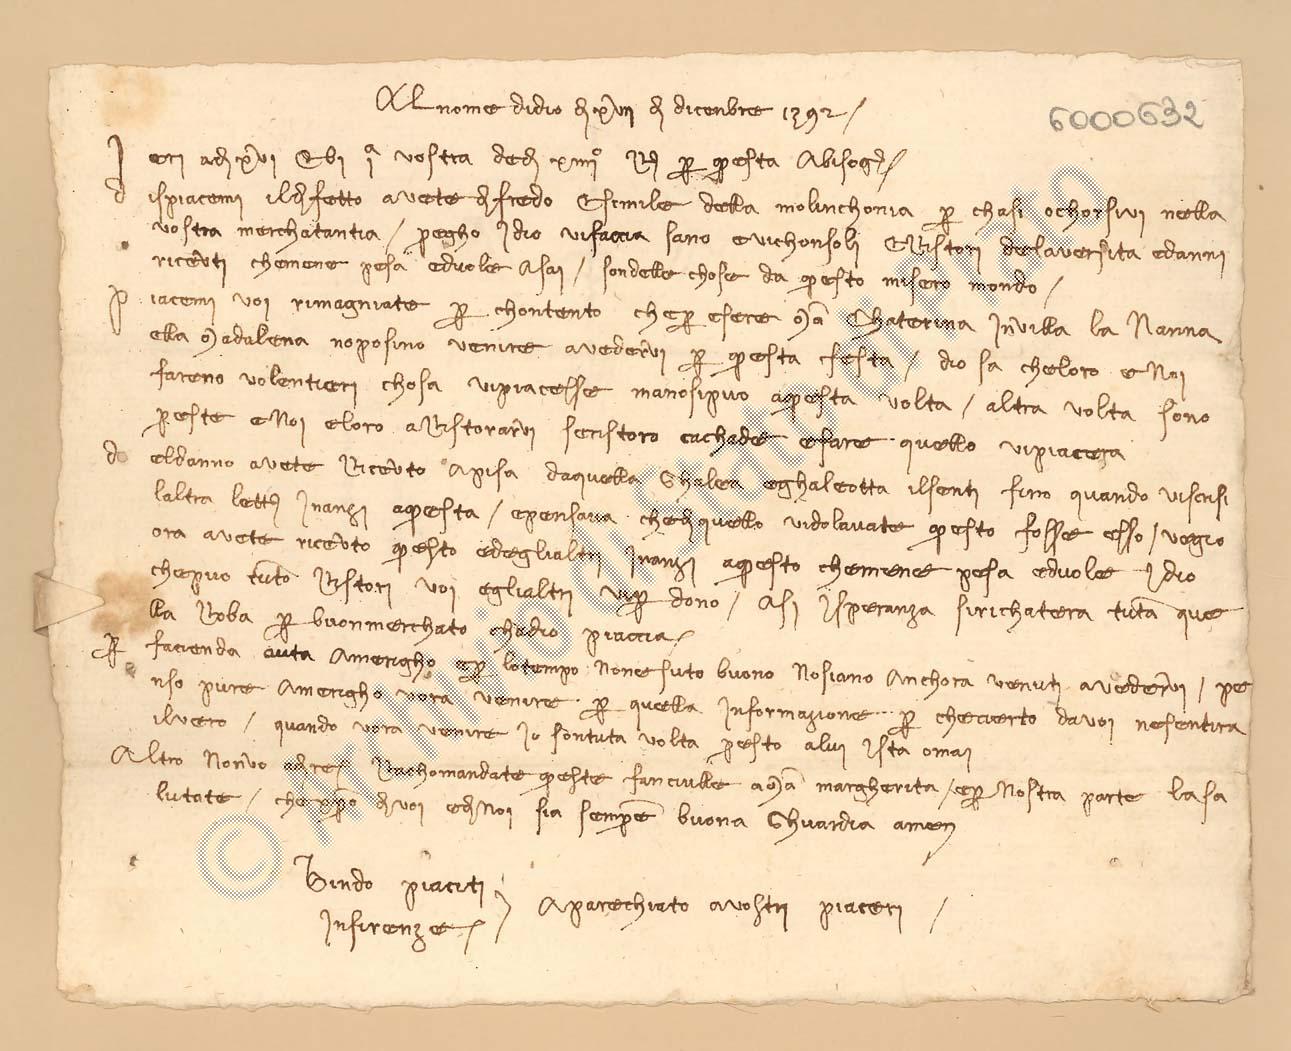 Al nome di dio di xvii di dicenbre 1392 /
6000632
Ieri adi xvi Ebi iª vostra dedi xiiiiº Rdi per questa Abisogni /
dispiacemi il difetto avete di fredo Esimile della molinchonia per chasi ochorsivi nella
vostra merchatantia / priegho Idio vifaccia sano evichonsoli ERistori delaversita edanni
ricievuti chemene pesa eduole Asai / sondelle chose da questo misero mondo /
piacemi voi rimagniate per chontento cheper esere mª Chaterina Invilla la Nanna
ella madalena noposino venire avedervi per questa festa / dio sa cheloro eNoi
fareno volentieri chosa vipiacesse manosipuo aquesta volta / altra volta sono
preste eNoi eloro aRistorarvi seristoro cachade efare quello vipiacera
deldanno avete Ricevuto Apisa daquella Ghalea eghaleotta ilsenti fino quando viscrisi
laltra lettera Inanzi aquesta / epensava chedi quello vidolavate questo fosse esso / vegio
ora avete ricevuto questo edeglialtri Inanzi aquesto chemene pesa eduole Idio
chepuo tutto Ristori voi eglialtri viper dono / Asi Isperanza sirichatera tutta que
lla Roba per buonmerchato chadio piaccia /
per facienda auta Amerigho eper lotempo Nonesuto buono Nosiano Anchora venuti avedervi / pe
nso pure Amerigho vora venire per quella Informazione per checierto davoi nesentira
ilvero / quando vora venire Io sontuta volta presto alui Ista omai
Altro Nonvo adire / Rachomandate queste fanciulle amª margherita / eper Nostra parte lasa
lutate / cheppo di voi edi Noi sia sempre buona Ghuardia amen
Bindo piaciti
Infirenze / Aparechiato avostri piaceri /
© Archivio di Stato di Prato